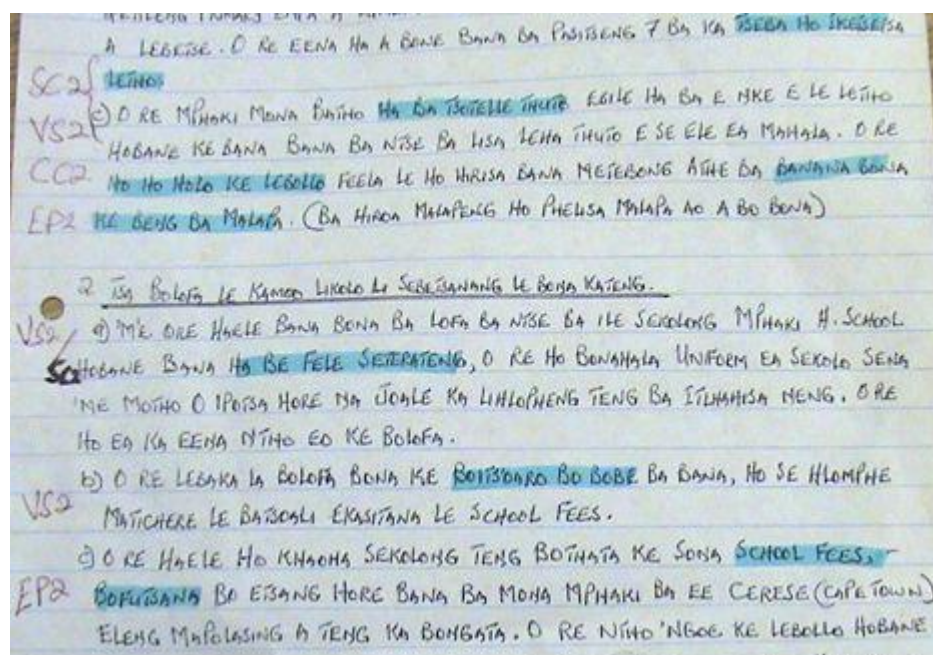 A LEBEISE. O RE EENA HA A BONE BANA BA PASITSENG 7 BA KA TSEBA HO IKEISISA
SC2 LETHO.
VS2 c) O RE MPHAKI MONA BATHO HA BA TSOTELLE THUTO EBILE HA BA E NKE E LE LETHO
HOBANE KE BANA BANA BA NTSE BA LISA LEHA THUTO E SE ELE EA MAHALA. O RE
CC2 HO HO HOLO KE LEBOLLO FEELA LE HO HIRISA BANA METEBONG ATHE BA BANANA BONA
EP2 KE BENG BA MALAPA. (BA HIROA MALAPENG HO PHELISA MALAPA AO A BO BONA)
2 TSA BOLOFA LE KAMOO LIKOLO LI SEBETSANANG LE BONA KATENG.
VS2 a) 'M'E ORE HAELE BANA BONA BA LOFA BA NTSE BA ILE SEKOLONG MPHAKI H. SCHOOL
SC HOBANE BANA HA BE FELE SETERATENG, O RE HO BONAHALA UNIFORM EA SEKOLO SENA
'ME MOTHO O IPOTSA HORE NA JOALE KA LIHLOPHENG TENG BA ITLHAHISA NENG. O RE
HO EA KA EENA NTHO EO KE BOLOFA.
b) O RE LEBAKA LA BOLOFA BONA KE BOITSOARO BO BOBE BA BANA, HO SE HLOMPHE
VS2 MATICHERE LE BATSOALI EKASITANA LE SCHOOL FEES.
c) O RE HAELE HO KHAOHA SEKOLONG TENG BOTHATA KE SONA SCHOOL FEES, -
EP2 BOFUTSANA BO ETSANG HORE BANA BA MONA MPHAKI BA EE CERESE (CAPE TOWN)
ELENG MAPOLASING A TENG KA BONGATA. O RE NTHO 'NGOE KE LEBOLLO HOBANE